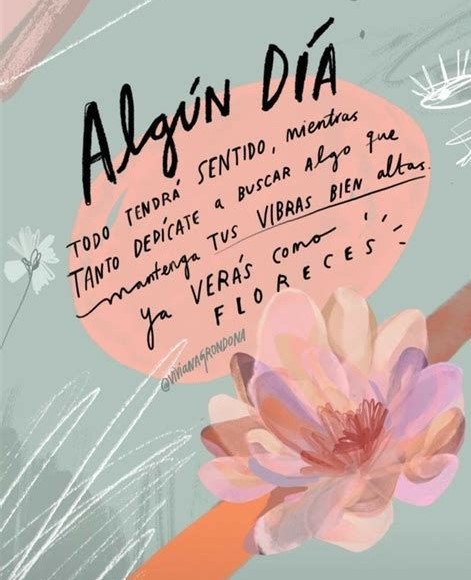 Algún DÍA
TODO TENDRÁ SENTIDO, mientras
TANTO DEDÍCATE a BUSCAR Algo que
mantenga TUS VIBRAS BIEN altas.
ya VERÁS como
FLORECES
@VIVIANAGRONDONA